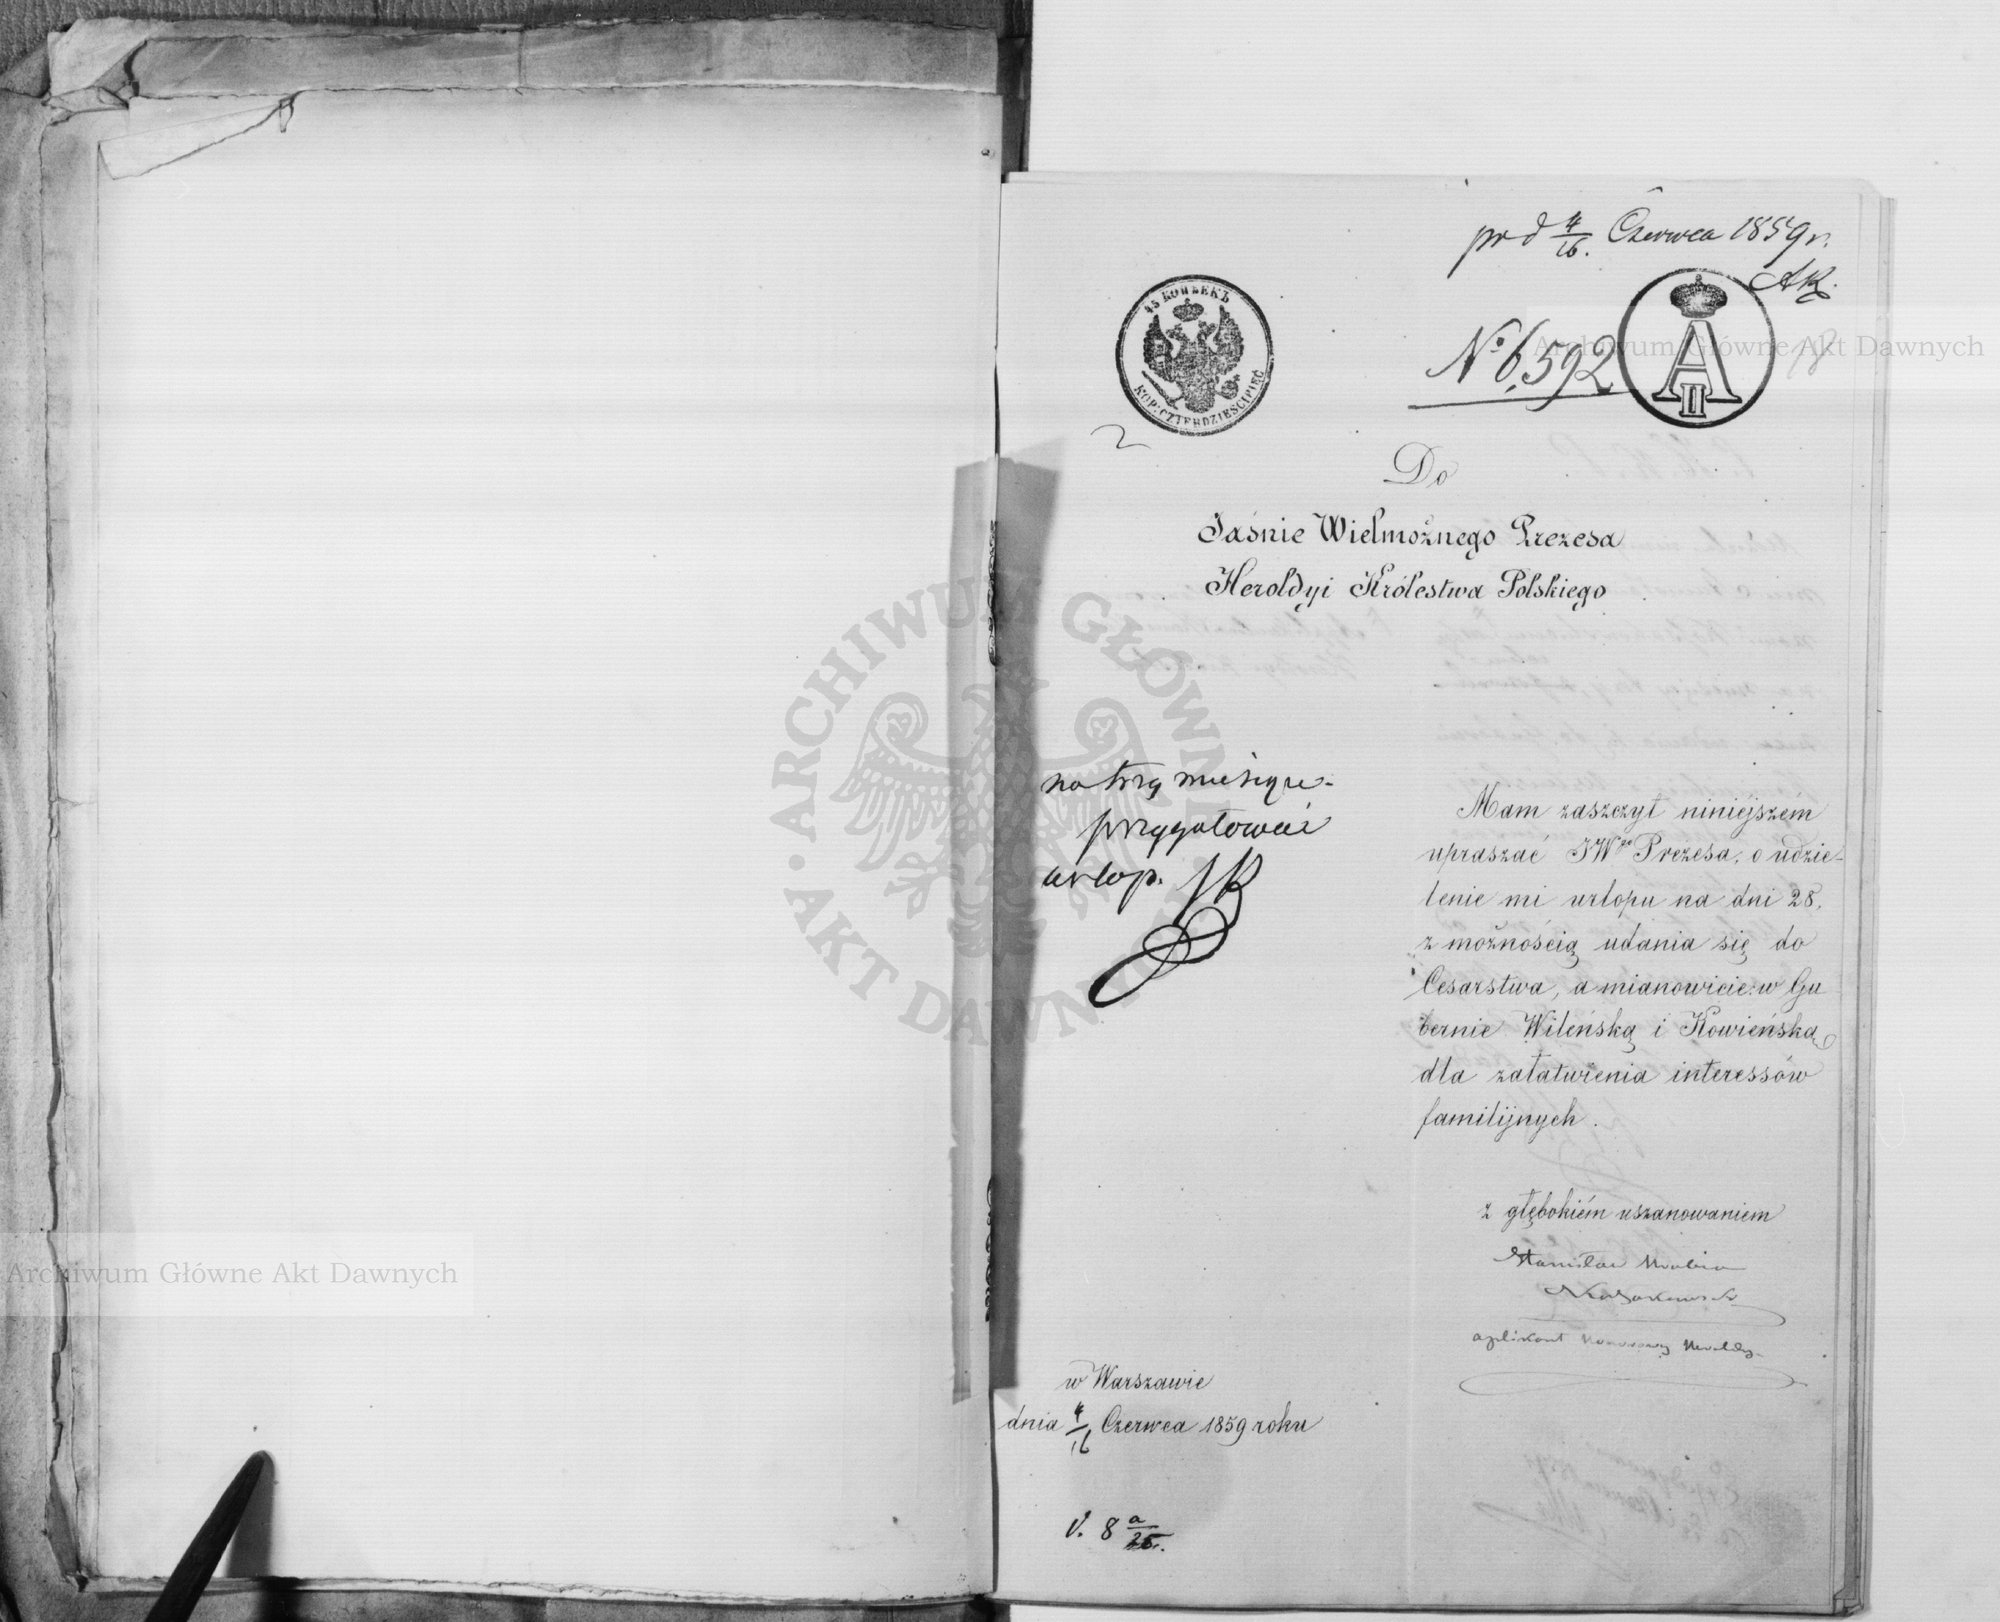 pr d 4/16. Czerwca 1859 r.
AR.
45 КОПѢЕКЪ
KOP: CZTERDZIEŚCI PIĘĆ
№ 6,592
A II
18
2
Do
Jaśnie Wielmożnego Prezesa
Heroldyi Królestwa Polskiego
na trzy miesiące
przygotować
urlop.
Mam zaszczyt niniejszém
upraszać JWgo Prezesa, o udzie-
lenie mi urlopu na dni 28,
z możnością udania się do
Cesarstwa, a mianowicie: w Gu
bernie Wileńską i Kowieńską
dla załatwienia interessów
familijnych.
z głębokiém uszanowaniem
Stanisław Hrabia
Kossakowski
aplikant honorowy Heroldyi
w Warszawie
dnia 4/16 Czerwca 1859 roku
V. 8 a/25.
Archiwum Główne Akt Dawnych
Archiwum Główne Akt Dawnych
ARCHIWUM GŁÓWNE · AKT DAWNYCH ·